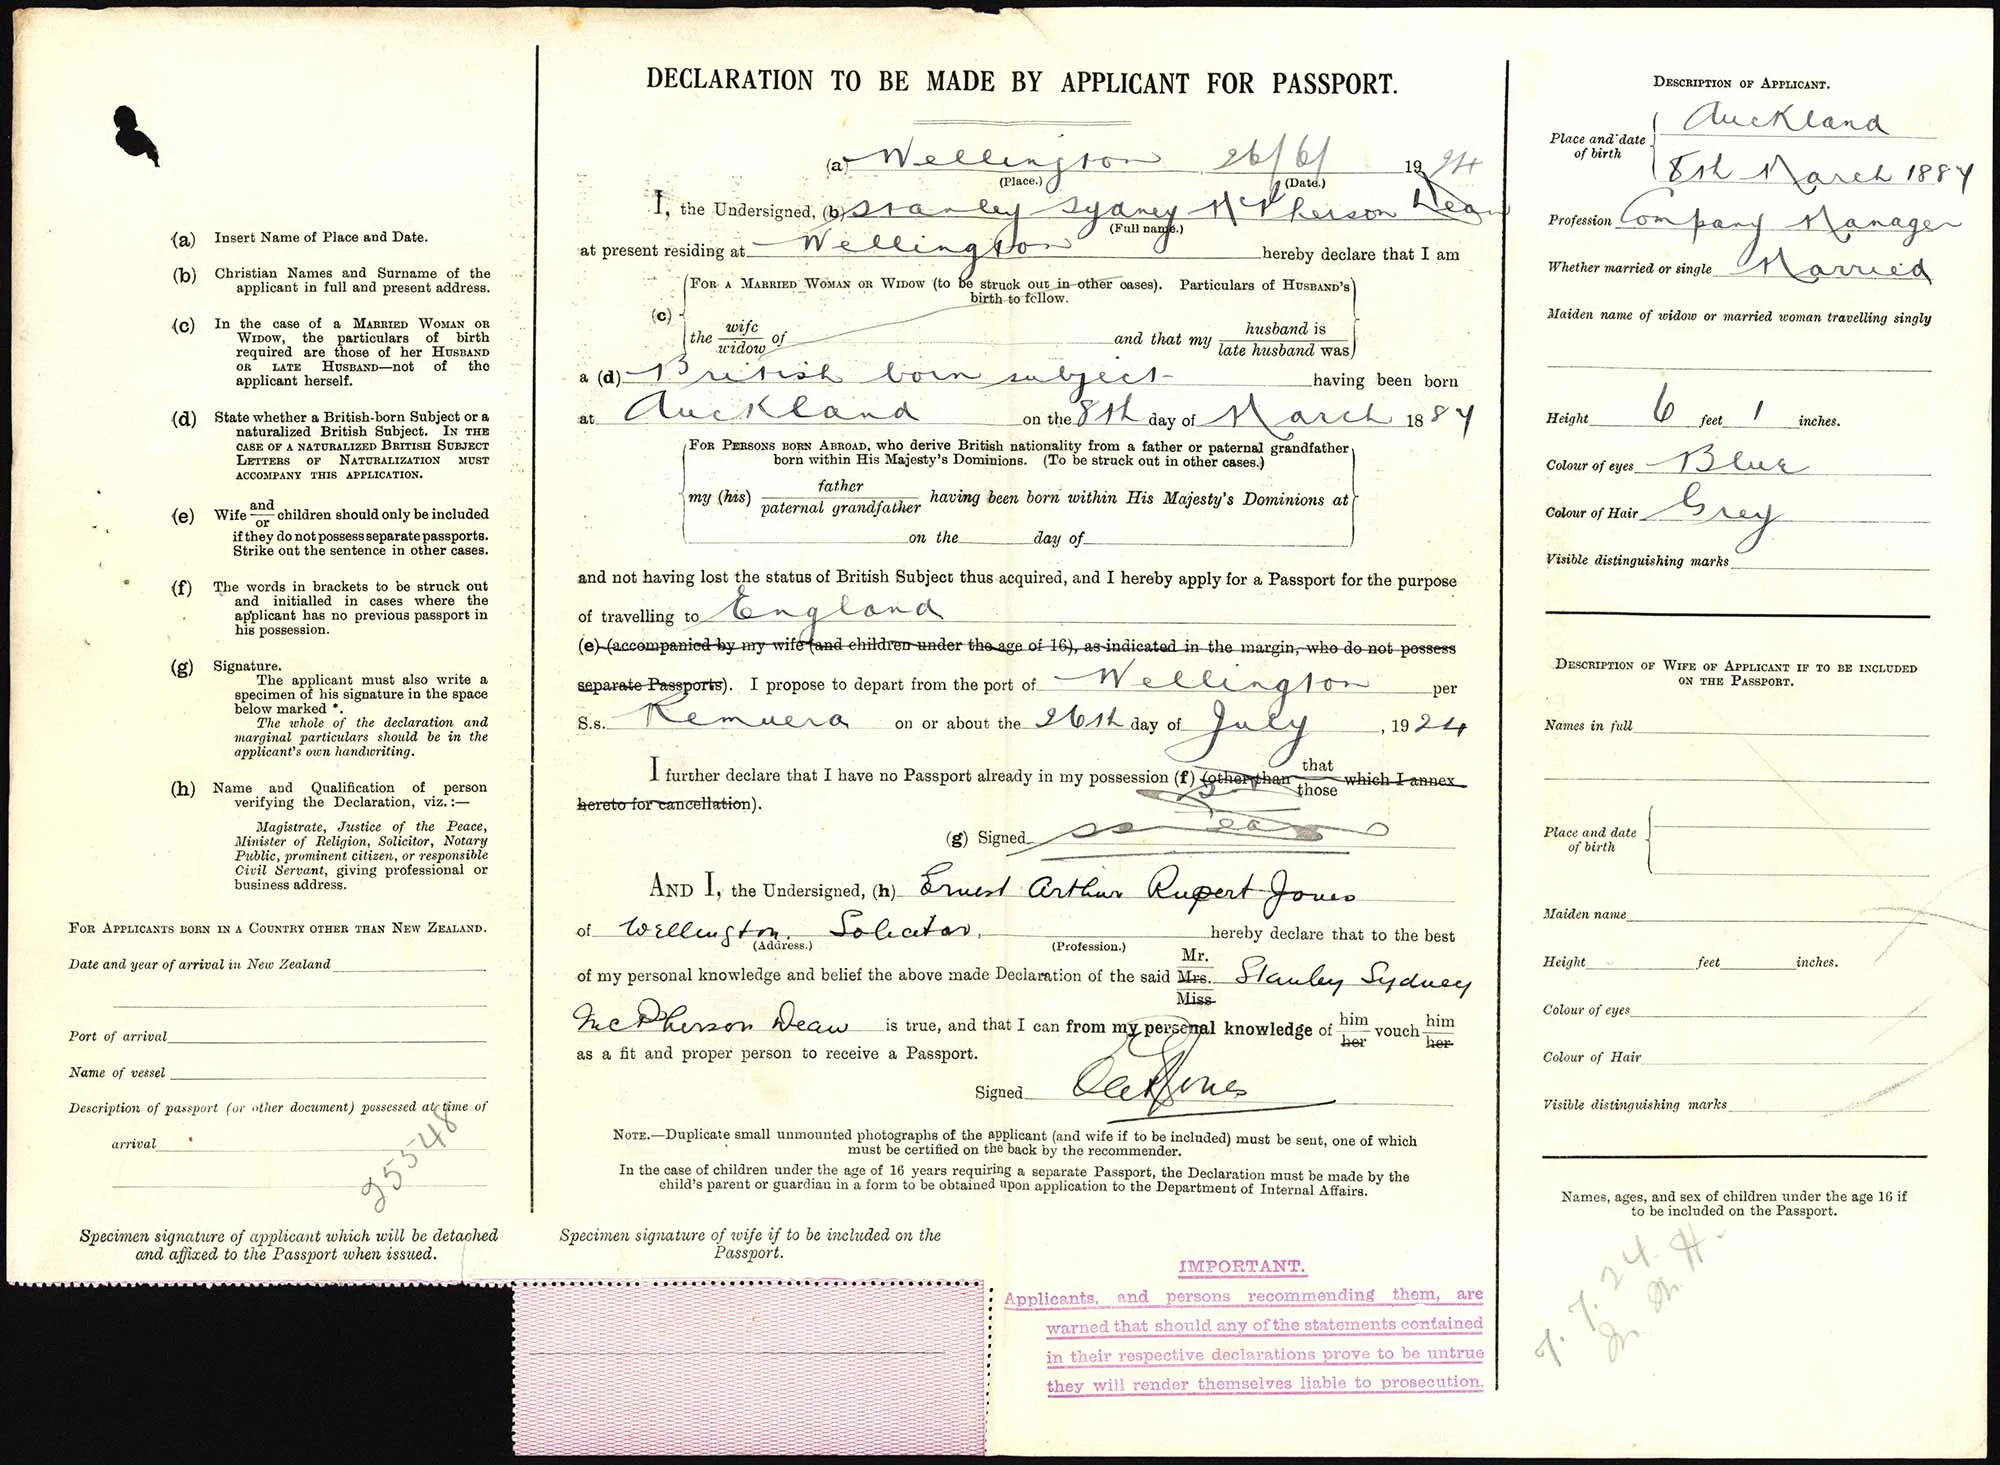 (a) Insert Name of Place and Date.
(b) Christian Names and Surname of the
applicant in full and present address.
(c) In the case of a Married Woman or
Widow, the particulars of birth
required are those of her Husband
or late Husband—not of the
applicant herself.
(d) State whether a British-born Subject or a
naturalized British Subject. In the
case of a naturalized British Subject
Letters of Naturalization must
accompany this application.
(e) Wife and/or children should only be included
if they do not possess separate passports.
Strike out the sentence in other cases.
(f) The words in brackets to be struck out
and initialled in cases where the
applicant has no previous passport in
his possession.
(g) Signature.
The applicant must also write a
specimen of his signature in the space
below marked *.
The whole of the declaration and
marginal particulars should be in the
applicant's own handwriting.
(h) Name and Qualification of person
verifying the Declaration, viz.:—
Magistrate, Justice of the Peace,
Minister of Religion, Solicitor, Notary
Public, prominent citizen, or responsible
Civil Servant, giving professional or
business address.
For Applicants born in a Country other than New Zealand.
Date and year of arrival in New Zealand
Port of arrival
Name of vessel
Description of passport (or other document) possessed at time of
arrival
25548
Specimen signature of applicant which will be detached
and affixed to the Passport when issued.
DECLARATION TO BE MADE BY APPLICANT FOR PASSPORT.
(a) Wellington 26/6/ 1924
(Place.) (Date.)
I, the Undersigned, (b) Stanley Sydney McPherson Dean
(Full name.)
at present residing at Wellington hereby declare that I am
(c) For a Married Woman or Widow (to be struck out in other cases). Particulars of Husband's
birth to follow.
the wife/widow of and that my husband is/late husband was
a (d) British born subject having been born
at Auckland on the 8th day of March 1884
For Persons born Abroad, who derive British nationality from a father or paternal grandfather
born within His Majesty's Dominions. (To be struck out in other cases.)
my (his) father/paternal grandfather having been born within His Majesty's Dominions at
on the day of
and not having lost the status of British Subject thus acquired, and I hereby apply for a Passport for the purpose
of travelling to England
(e) (accompanied by my wife (and children under the age of 16), as indicated in the margin, who do not possess
separate Passports). I propose to depart from the port of Wellington per
S.s. Remuera on or about the 26th day of July, 1924
I further declare that I have no Passport already in my possession (f) (other than that/those which I annex
hereto for cancellation).
(g) Signed SS Dean
And I, the Undersigned, (h) Ernest Arthur Rupert Jones
of Wellington. Solicitor, hereby declare that to the best
(Address.) (Profession.)
of my personal knowledge and belief the above made Declaration of the said Mr. Mrs. Miss Stanley Sydney
McPherson Dean is true, and that I can from my personal knowledge of him/her vouch him/her
as a fit and proper person to receive a Passport.
Signed EAR Jones
Note.—Duplicate small unmounted photographs of the applicant (and wife if to be included) must be sent, one of which
must be certified on the back by the recommender.
In the case of children under the age of 16 years requiring a separate Passport, the Declaration must be made by the
child's parent or guardian in a form to be obtained upon application to the Department of Internal Affairs.
Specimen signature of wife if to be included on the
Passport.
IMPORTANT.
Applicants, and persons recommending them, are
warned that should any of the statements contained
in their respective declarations prove to be untrue
they will render themselves liable to prosecution.
Description of Applicant.
Place and date of birth Auckland
8th March 1884
Profession Company Manager
Whether married or single Married
Maiden name of widow or married woman travelling singly
Height 6 feet 1 inches.
Colour of eyes Blue
Colour of Hair Grey
Visible distinguishing marks
Description of Wife of Applicant if to be included
on the Passport.
Names in full
Place and date
of birth
Maiden name
Height feet inches.
Colour of eyes
Colour of Hair
Visible distinguishing marks
Names, ages, and sex of children under the age 16 if
to be included on the Passport.
7. 7. 24.